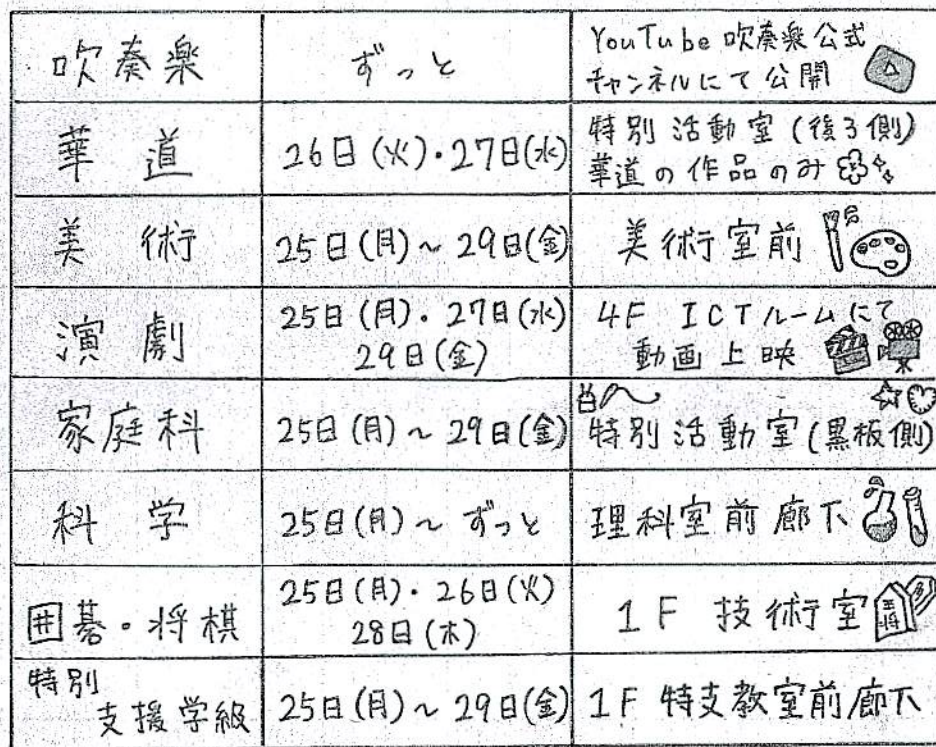 吹奏楽
ずっと
YouTube 吹奏楽公式
チャンネルにて公開
華道
26日(火)・27日(水)
特別活動室(後ろ側)
華道の作品のみ
美術
25日(月)~29日(金)
美術室前
演劇
25日(月)・27日(水)
29日(金)
4F ICTルームにて
動画上映
家庭科
25日(月)~29日(金)
特別活動室(黒板側)
科学
25日(月)~ずっと
理科室前廊下
囲碁・将棋
25日(月)・26日(火)
28日(木)
1F 技術室
特別
支援学級
25日(月)~29日(金)
1F 特支教室前廊下